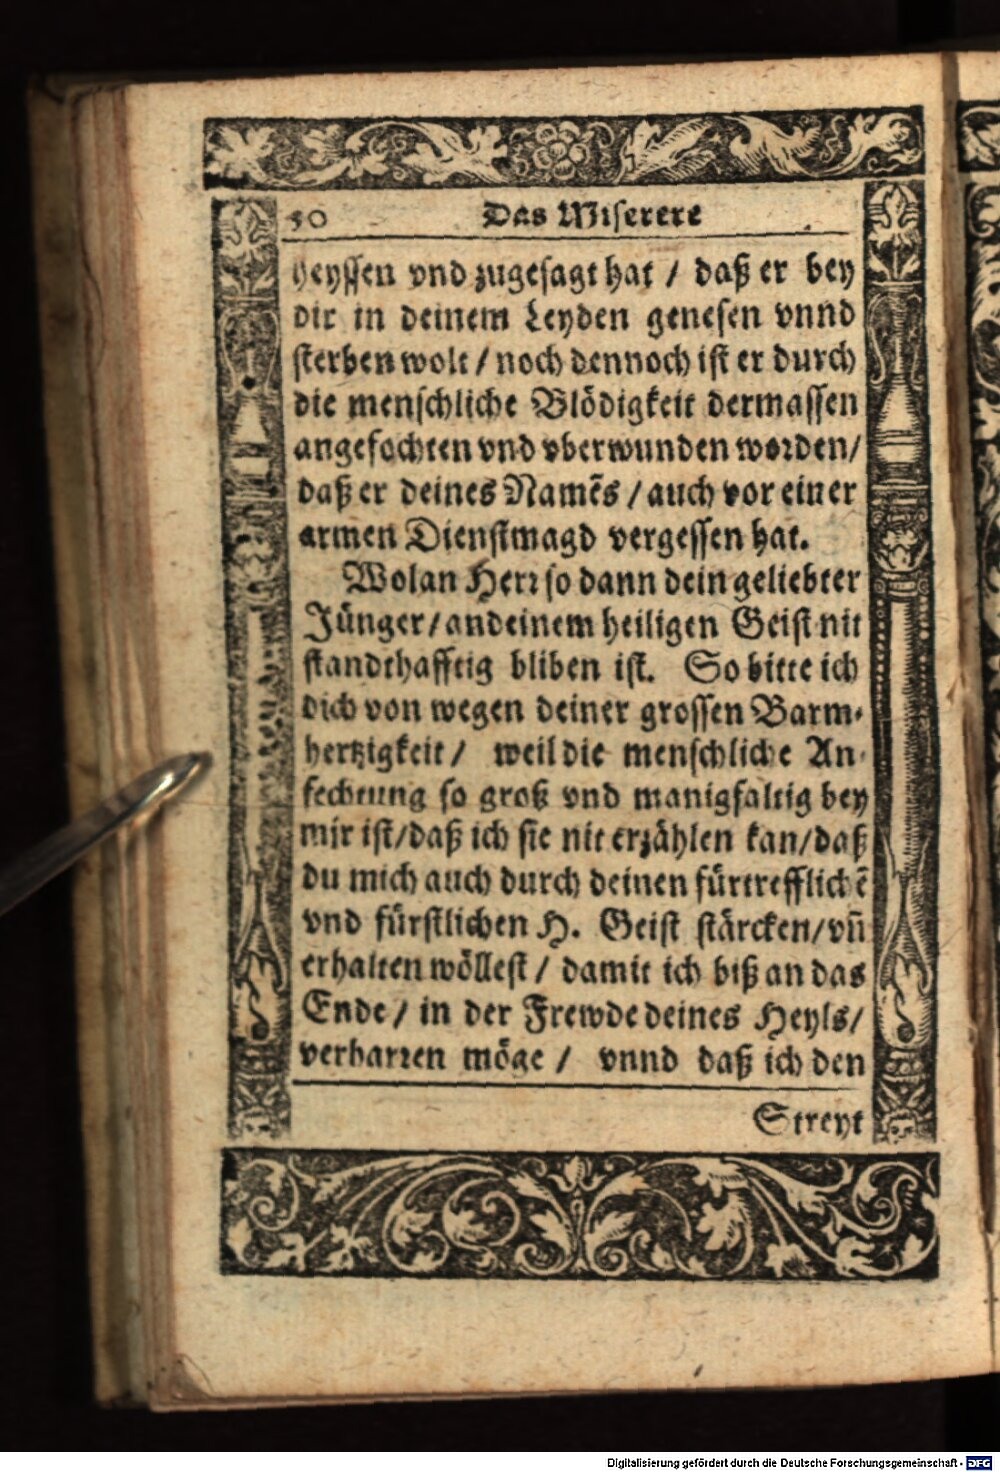 50 Das Miserere
heyssen vnd zugesagt hat / daß er bey
dir in deinem Leyden genesen vnnd
sterben wolt / noch dennoch ist er durch
die menschliche Blödigkeit dermassen
angefochten vnd vberwunden worden /
daß er deines Namẽs / auch vor einer
armen Dienstmagd vergessen hat.
Wolan Herr so dann dein geliebter
Jünger / an deinem heiligen Geist nit
standthafftig bliben ist. So bitte ich
dich von wegen deiner grossen Barm-
hertzigkeit / weil die menschliche An-
fechtung so groß vnd manigfaltig bey
mir ist / daß ich sie nit erzählen kan / daß
du mich auch durch deinen fürtrefflichẽ
vnd fürstlichen H. Geist stärcken / vñ
erhalten wöllest / damit ich biß an das
Ende / in der Frewde deines Heyls /
verharren möge / vnnd daß ich den
Streyt
Digitalisierung gefördert durch die Deutsche Forschungsgemeinschaft - DFG